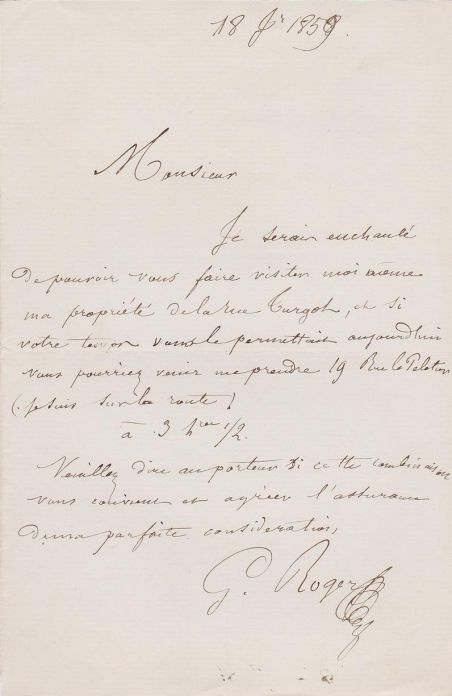 18 Jr 1859.
Monsieur
Je serais enchanté
de pouvoir vous faire visiter moi même
ma propriété de la rue Turgot, et si
votre temps vous le permettait aujourdhui
vous pourriez venir me prendre 19 Rue le Peletier
(je suis sur la route)
à 3 hres 1/2.
Veuillez dire au porteur si cette combinaison
vous convient et agréer l'assurance
de ma parfaite considération,
G. Roger